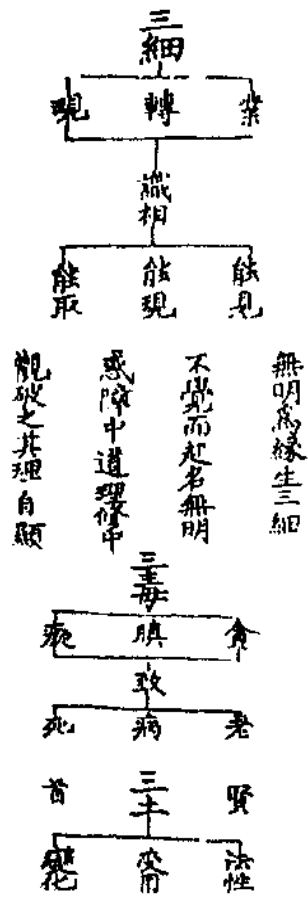 三細
業 轉 現
識相
能見 能現 能取
無明為緣生三細
不覺而起名無明
惑障中道理修中
觀破之其理自顯
三毒
貪 瞋 痴
致
老 病 死
賢 三土 首
法性 变用 變化